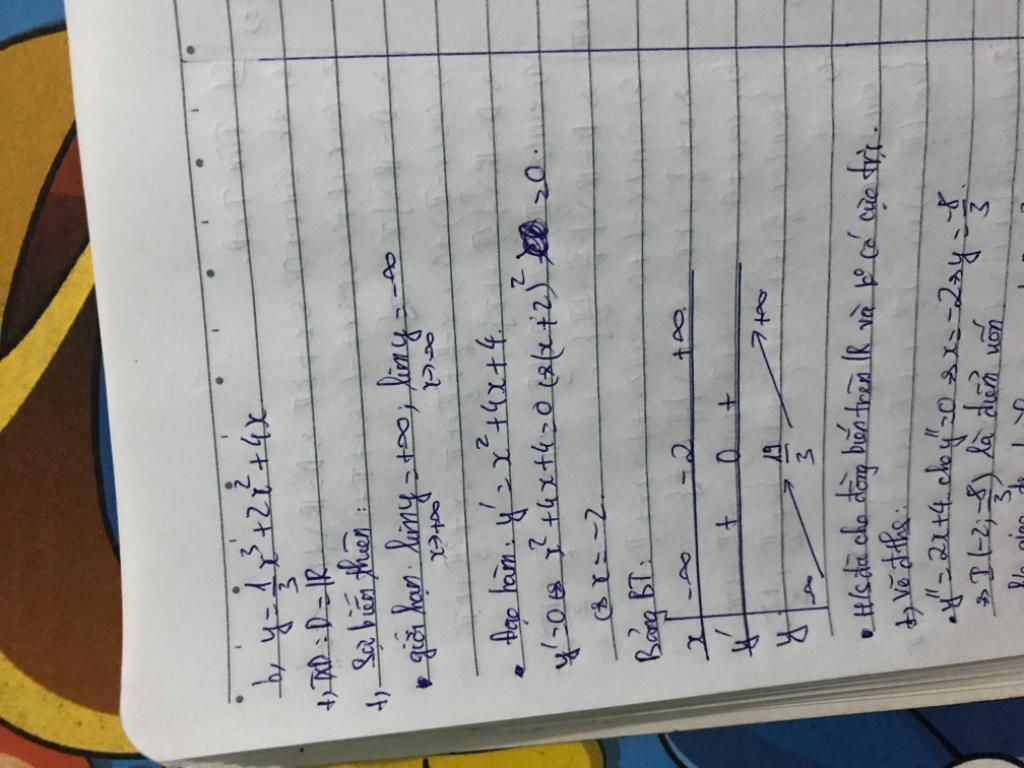 b, y = 1/3 x³ + 2x² + 4x
+, TXĐ: D = IR
+, Sự biến thiên:
• giới hạn: lim y = +∞; lim y = -∞
x→+∞ x→-∞
• Đạo hàm: y' = x² + 4x + 4.
y' = 0 ⇔ x² + 4x + 4 = 0 ⇔ (x + 2)² = 0.
⇔ x = -2
Bảng BT:
x -∞ -2 +∞
y' + 0 +
y -∞ 3 +∞
• H/s đã cho đồng biến trên IR và k° có cực trị.
+, Vẽ đths:
• y'' = 2x + 4 cho y'' = 0 ⇒ x = -2 ⇒ y = -8/3
⇒ I (-2; -8/3) là điểm uốn